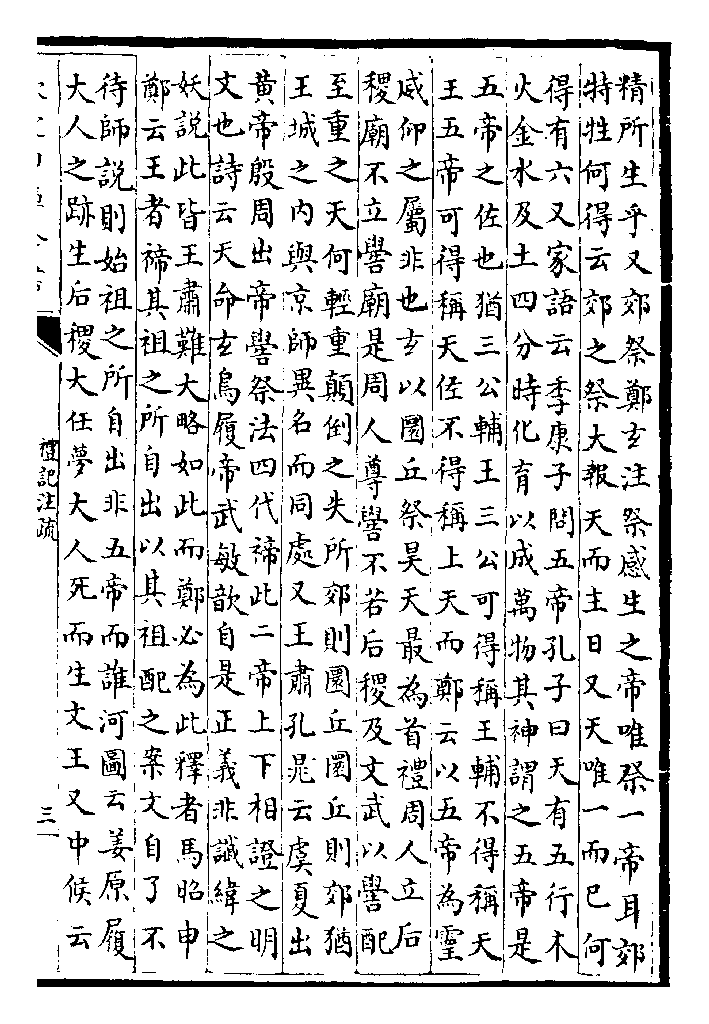 精所生乎又郊祭鄭玄注祭感生之帝唯祭一帝耳郊
特牲何得云郊之祭大報天而主日又天唯一而已何
得有六又家語云季康子問五帝孔子曰天有五行木
火金水及土四分時化育以成萬物其神謂之五帝是
五帝之佐也猶三公輔王三公可得稱王輔不得稱天
王五帝可得稱天佐不得稱上天而鄭云以五帝為靈
威仰之屬非也玄以圜丘祭昊天最為首禮周人立后
稷廟不立嚳廟是周人尊嚳不若后稷及文武以嚳配
至重之天何輕重顛倒之失所郊則圜丘圜丘則郊猶
王城之内與京師異名而同處又王肅孔晁云虞夏出
黄帝殷周出帝嚳祭法四代禘此二帝上下相證之明
文也詩云天命玄鳥履帝武敏歆自是正義非讖緯之
妖說此皆王肅難大略如此而鄭必為此釋者馬昭申
鄭云王者禘其祖之所自出以其祖配之案文自了不
待師說則始祖之所自出非五帝而誰河圖云姜原履
大人之跡生后稷大任夢大人死而生文王又中候云
禮記注疏
三